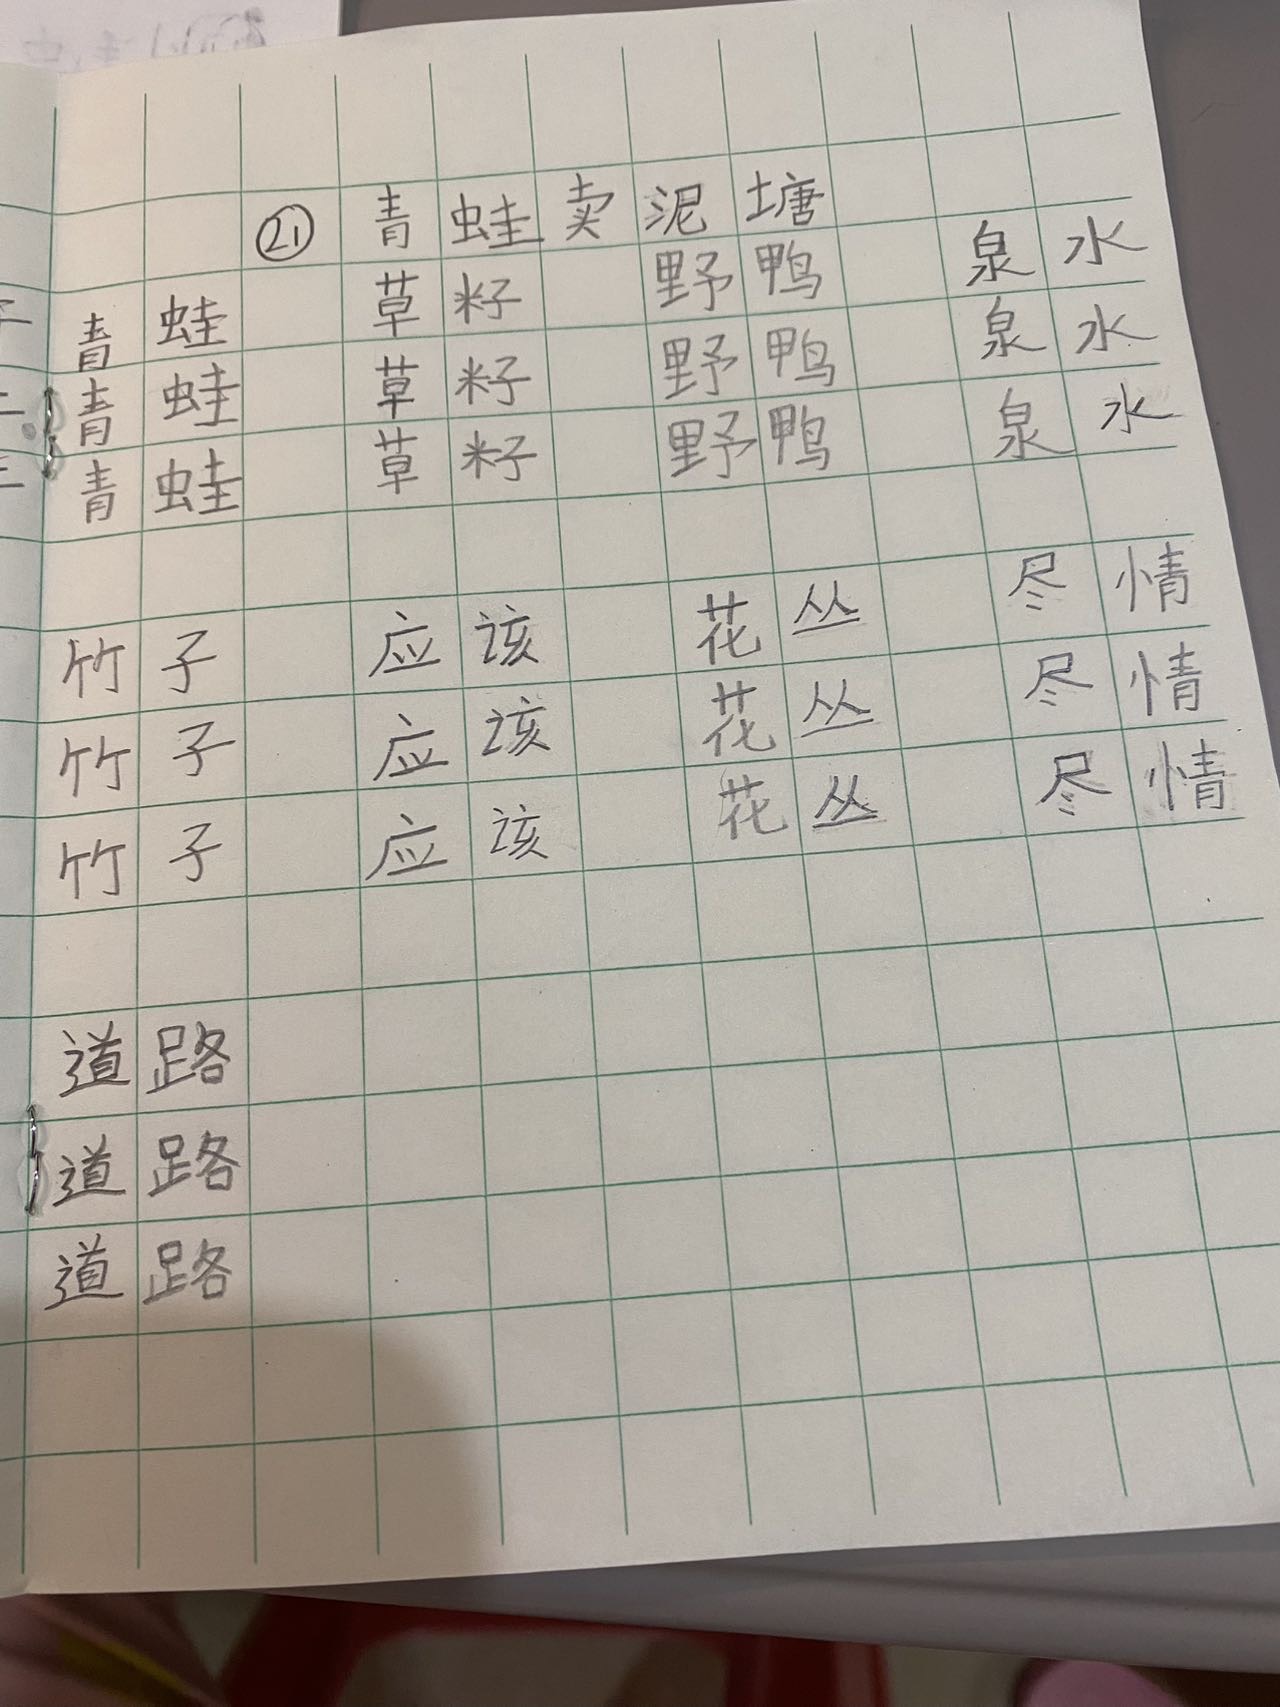 ㉑ 青蛙卖泥塘
青蛙 草籽 野鸭 泉水
青蛙 草籽 野鸭 泉水
青蛙 草籽 野鸭 泉水
竹子 应该 花丛 尽情
竹子 应该 花丛 尽情
竹子 应该 花丛 尽情
道路
道路
道路